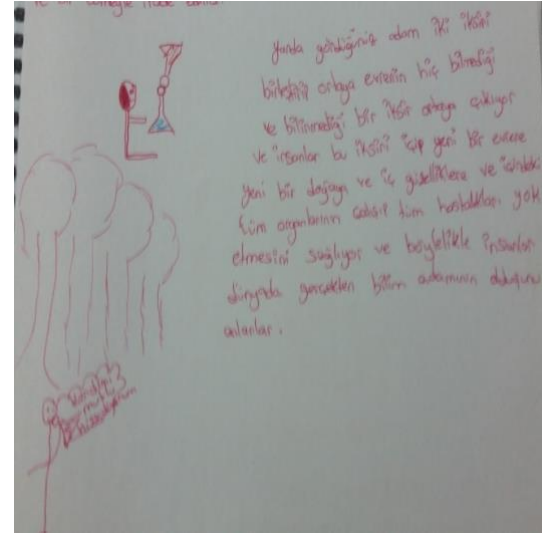 Yanda gördüğünüz adam iki iksiri
birleştirip ortaya evrenin hiç bilmediği
ve bilinmediği bir iksir ortaya çıkıyor
ve insanlar bu iksiri içip yeni bir evrene
yeni bir doğaya ve iç güzelliklere ve içindeki
tüm organlarının çalışıp tüm hastalıkları yok
etmesini sağlıyor ve böylelikle insanlar
dünyada gerçekten bilim adamının olduğunu
anlarlar.
Kendimi
hissediyorum